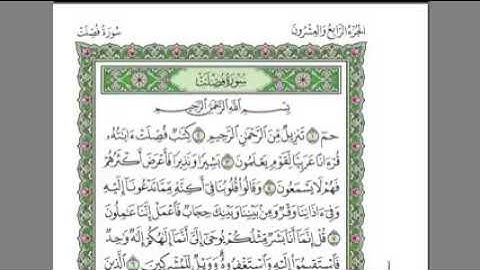 سورة فصلت
الجزء الرابع والعشرون
سورة فصلت
بسم الله الرحمن الرحيم
حم ۝١ تنزيل من الرحمن الرحيم ۝٢ كتب فصلت ءايته
قرءانا عربيا لقوم يعلمون ۝٣ بشيرا ونذيرا فأعرض أكثرهم
فهم لا يسمعون ۝٤ وقالوا قلوبنا في أكنة مما تدعونا إليه
وفي ءاذاننا وقر ومن بيننا وبينك حجاب فاعمل إننا عملون
۝٥ قل إنما أنا بشر مثلكم يوحى إلي أنما إلهكم إله وحد
فاستقيموا إليه واستغفروه وويل للمشركين ۝٦ الذين